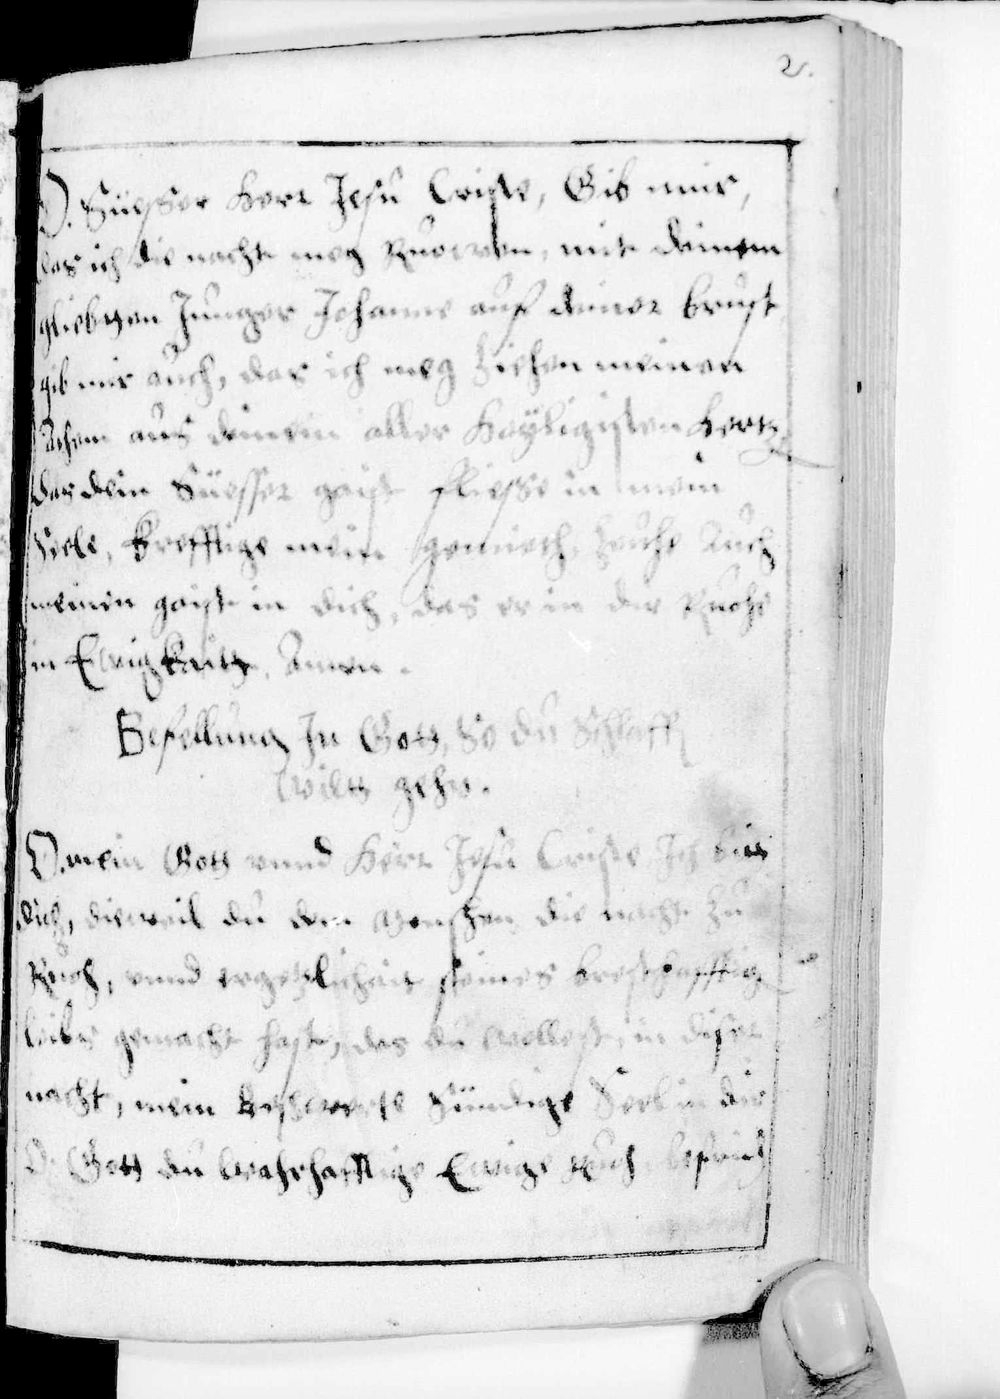 2.
O. Süesser Herr Jesu Criste, Gib mir,
das ich die nacht meg Ruoewen, mit deinem
gliebtten Junger Johanne auf deiner brust
gib mir auch, das ich meg ziehen meinen
Athem aus deinem aller Hayligisten Hertz
das dein Süesser gaist fliesse in mein
Seele, krefftige mein gemieth, zeuhe Auch
meinen gaist in dich, das er in dir Ruohe
in Ewigkeitt, Amen.
Befellung In Gott, So du Schlaff
Willt gehn.
O. mein Gott vnnd Herr Jesu Criste, Ich bitt
dich, dieweil du den Menschen die nacht zu
Ruoh, vnnd ergetzlichait seines bresthafftig
leibs gemacht hast, das du wellest, in diser
nacht, mein beschwerte Sündige Seel in dir
O. Gott du Wahrhafftige Ewige Ruoh